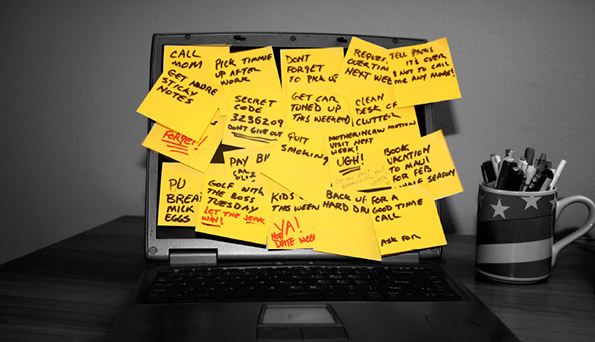 CALL
MOM
GET MORE
STICKY
NOTES
FORGET!
PICK TIMMIE
UP AFTER
WORK
DONT
FORGET
TO PICK UP
REQUEST
OVERTIME
NEXT WEEK
TELL
IT'S OVER
NOT TO CALL
ME ANY MORE!
SECRET
CODE
3236209
DON'T GIVE OUT
GET CAR
TUNED UP
THIS WEEKEND
CLEAN
DESK OF
CLUTTER
QUIT
SMOKING
MOTHERINLAW
VISIT NEXT
WEEK!
UGH!
MOTION
BOOK
VACATION
TO MAUI
FOR FEB
SEASON
PAY
PU
MILK
EGGS
GOLF WITH
THE BOSS
TUESDAY
LET THE JERK
WIN!
KIDS
THIS WEEK
YA!
DATE
BACK UP
HARD
FOR A
GOOD TIME
CALL
ASK FOR